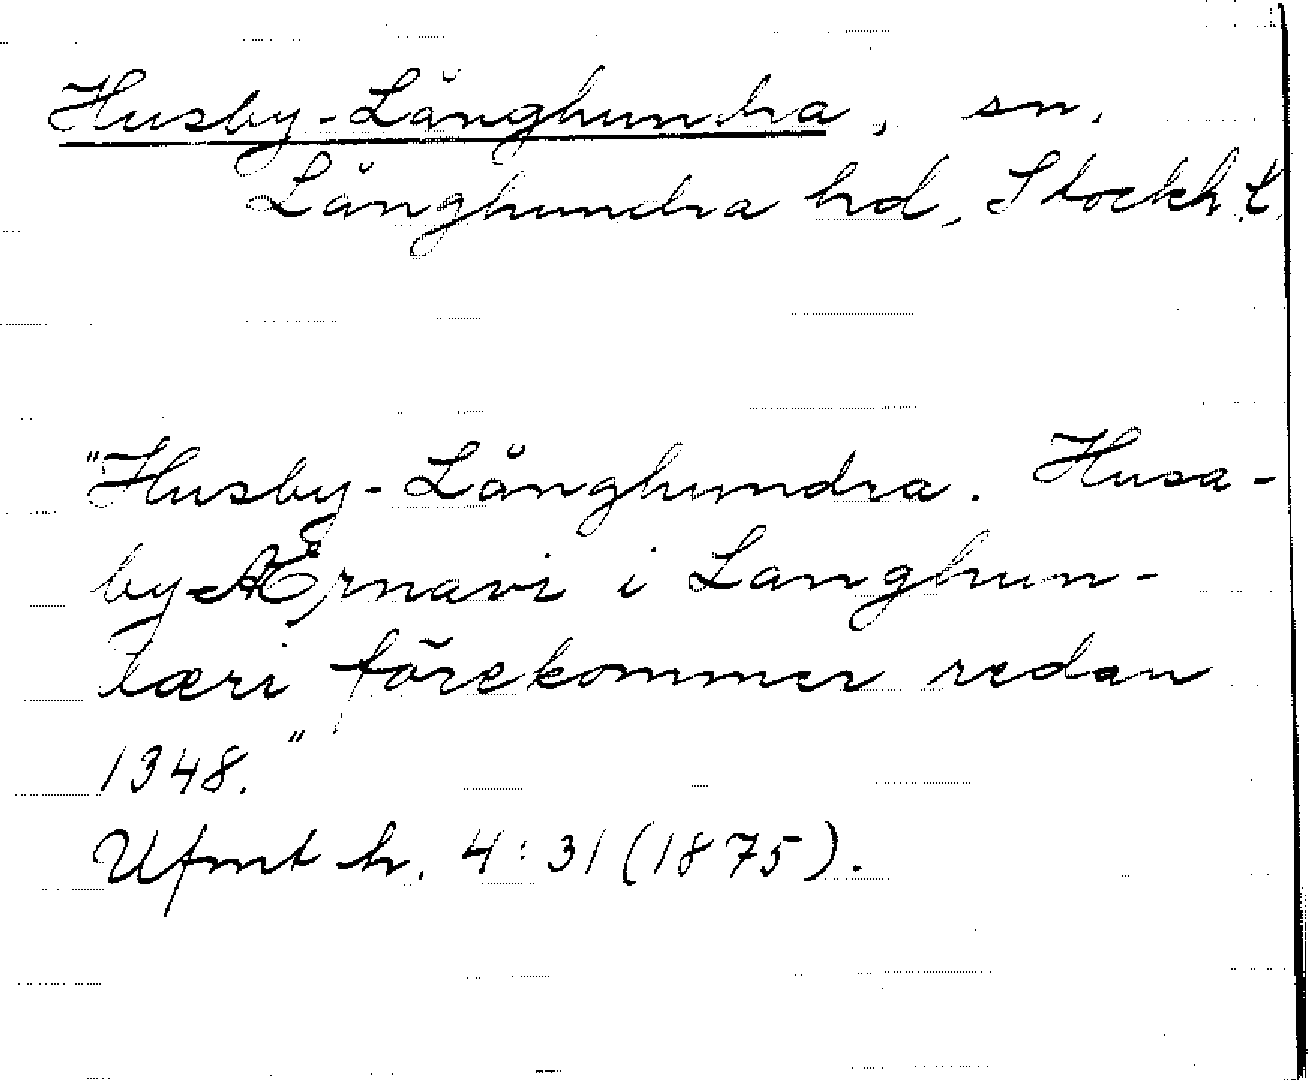 Husby-Långhundra, sn,
Långhundra hd, Stockh.l.
"Husby-Långhundra. Husa-
by Ærnavi i Langhun-
læri förekommer redan
1348."
Ufmt h. 4:31 (1875).